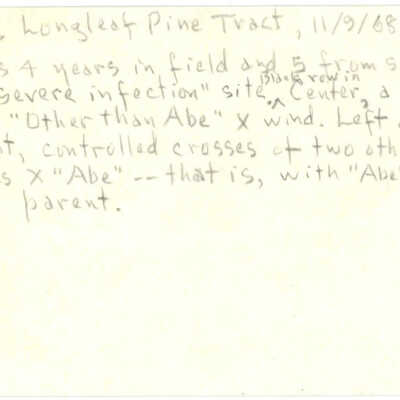 Longleaf Pine Tract, 11/9/68
s 4 years in field and 5 from s
Blank row in
severe infection" site. Center, a
"Other than Abe" x wind. Left
t, controlled crosses of two oth
s X "Abe" -- that is, with "Abe"
parent.